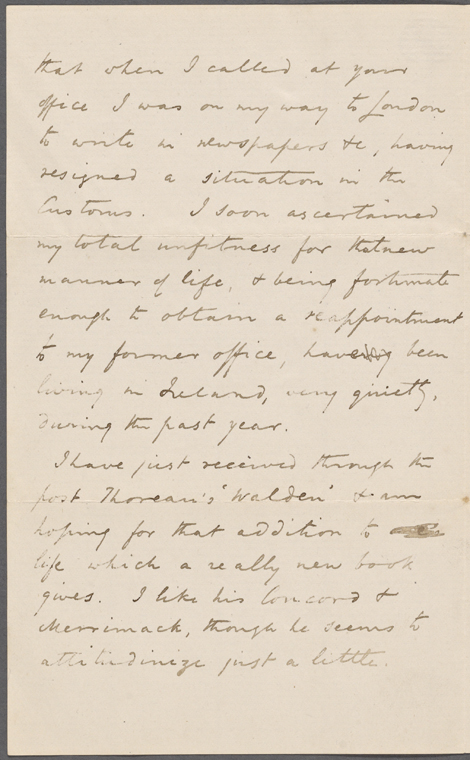 that when I called at your
office I was on my way to London
to write in newspapers &c, having
resigned a situation in the
Customs. I soon ascertained
my total unfitness for that new
manner of life, & being fortunate
enough to obtain a reappointment
to my former office, have been
living in Ireland, very quietly,
during the past year.
I have just received through the
post Thoreau's 'Walden' & am
hoping for that addition to
life which a really new book
gives. I like his Concord &
Merrimack, though he seems to
attitudinize just a little.